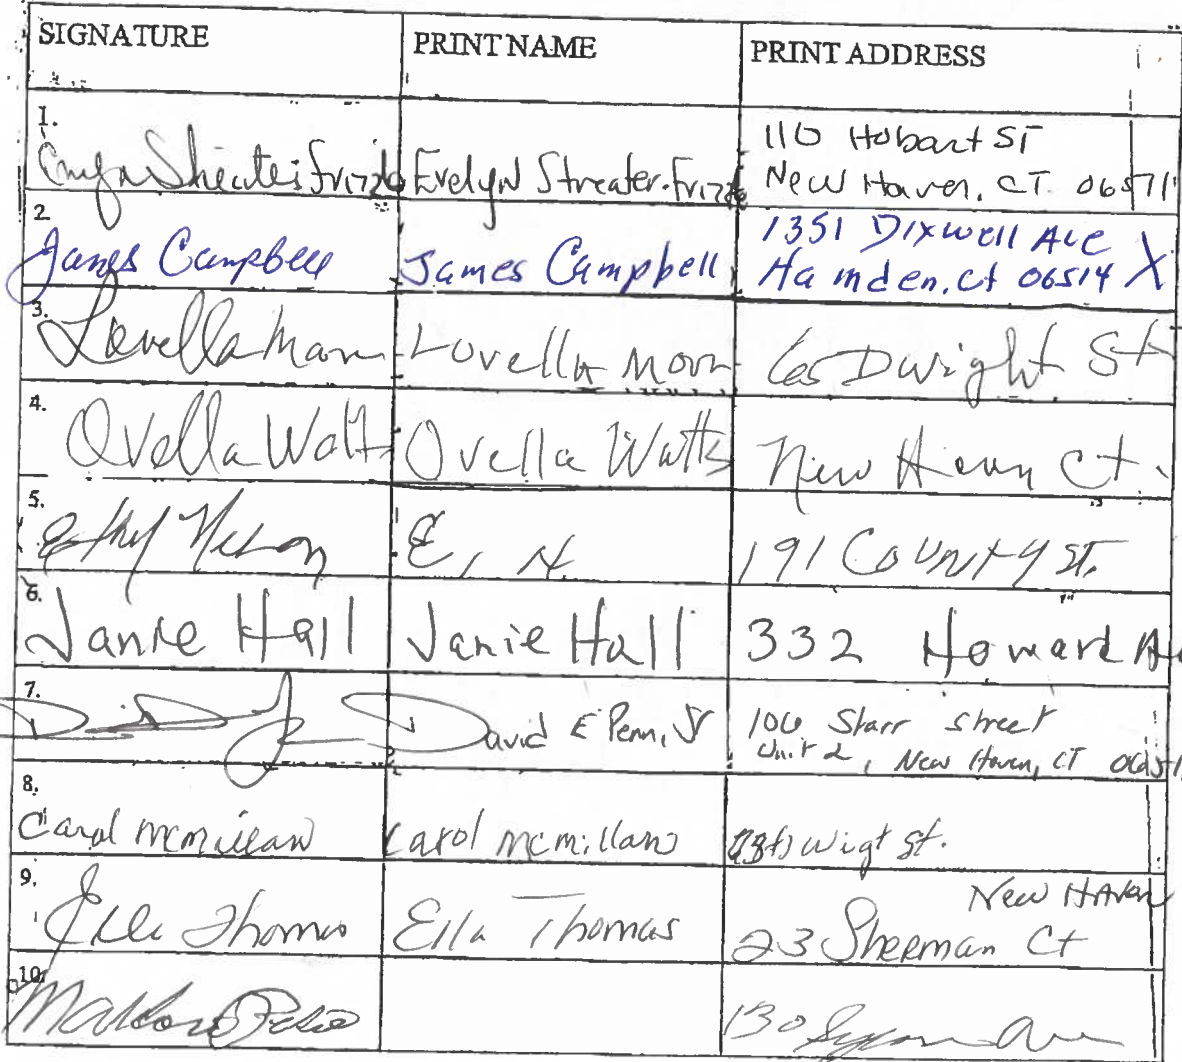 SIGNATURE
PRINT NAME
PRINT ADDRESS
1.
Streater-Frizz
Evelyn Streater-Frizz
110 Hobart ST
New Haven, CT 06511
2.
James Campbell
James Campbell
1351 Dixwell Ave X
Hamden, Ct 06514
3.
Lovella
Lovella
65 Dwight St
4.
Ovella Watts
Ovella Watts
New Haven Ct.
5.
Nelson
E. N.
191 County St.
6.
Janie Hall
Janie Hall
332 Howard A
7.
David E Penn, Jr
106 Starr street
Unit 2, New Haven, CT 06511
8.
Carol McMillan
Carol McMillan
St.
9.
Ella Thomas
Ella Thomas
New Haven
23 Sherman Ct
10.
130